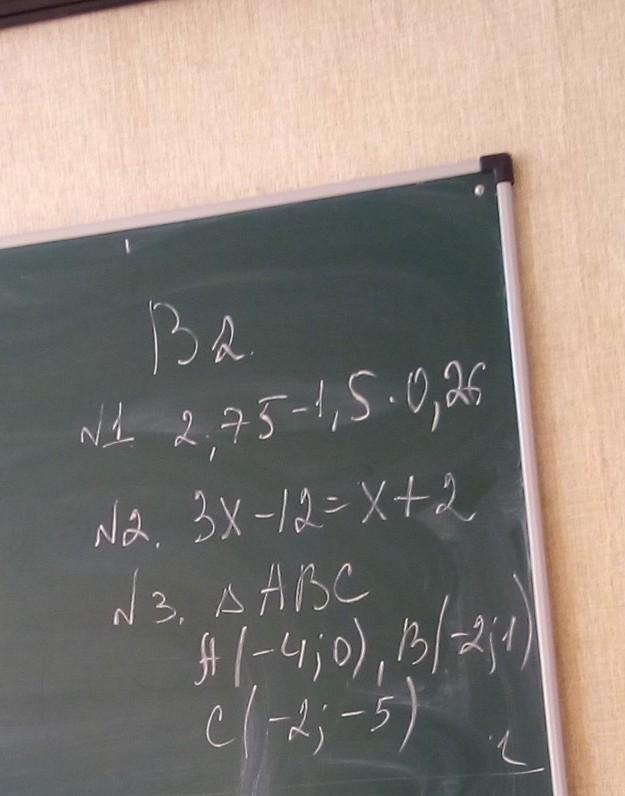 В 2.
№1 2,75-1,5·0,26
№2. 3x-12=x+2
№3. △ABC
A(-4;0), B(-2;1)
C(-2;-5)